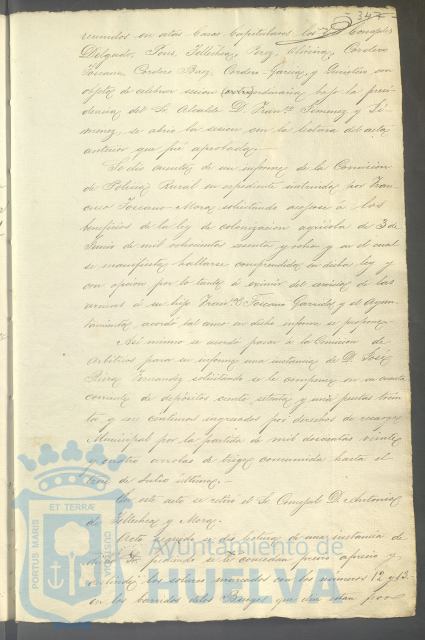 347
reunidos en estas Casas Capitulares los Sres Concejales
Delgado, Pons, Tellechea, Perez, Oliveira, Cordero
Toscano, Cordero Baez, Cordero Garcia, y Quintero con
objeto de celebrar sesion (extra)ordinaria bajo la presi-
dencia del Sr. Alcalde D. Franco. Jimenez y Ji-
menez, se abrio la sesion con la lectura del acta
anterior que fué aprobada.-
Se dio cuenta de un informe de la Comision
de Policia Rural en expediente instruido por Fran
cisco Toscano Mora, solicitando acojerse á los
beneficios de la ley de colonizacion agricola de 3 de
Junio de mil ochocientos sesenta y ocho; y en el cual
se manifiesta hallarse comprendido en dicha ley y
con opcion por lo tanto á eximir del servicio de las
armas á su hijo Franco. Toscano Garrido, y el Ayun-
tamiento, acordó tal como en dicho informe se propone.
Asi mismo se acordó pasar á la Comision de
Arbitrios para su informe una instancia de D. José
Perez Fernandez solicitando se le compense en su cuenta
corriente de depósitos ciento setenta y una pesetas trein
ta y seis centimos ingresados por derechos de recargo
Municipal por la partida de mil doscientas veinte
y cuatro arrobas de trigo consumida hasta el
tres de Julio ultimo.-
En este acto se retiró el Sr. Concejal D. Antonio
de Tellechea y Mora.
Acto seguido se dio lectura de una instancia de
pidiendo se le concedan previo aprecio y
los solares marcados con los números 12 y 13
en los corridos delos que dan por
PORTUS MARIS
ET TERRÆ
CUSTODIA
Ayuntamiento de
HUELVA